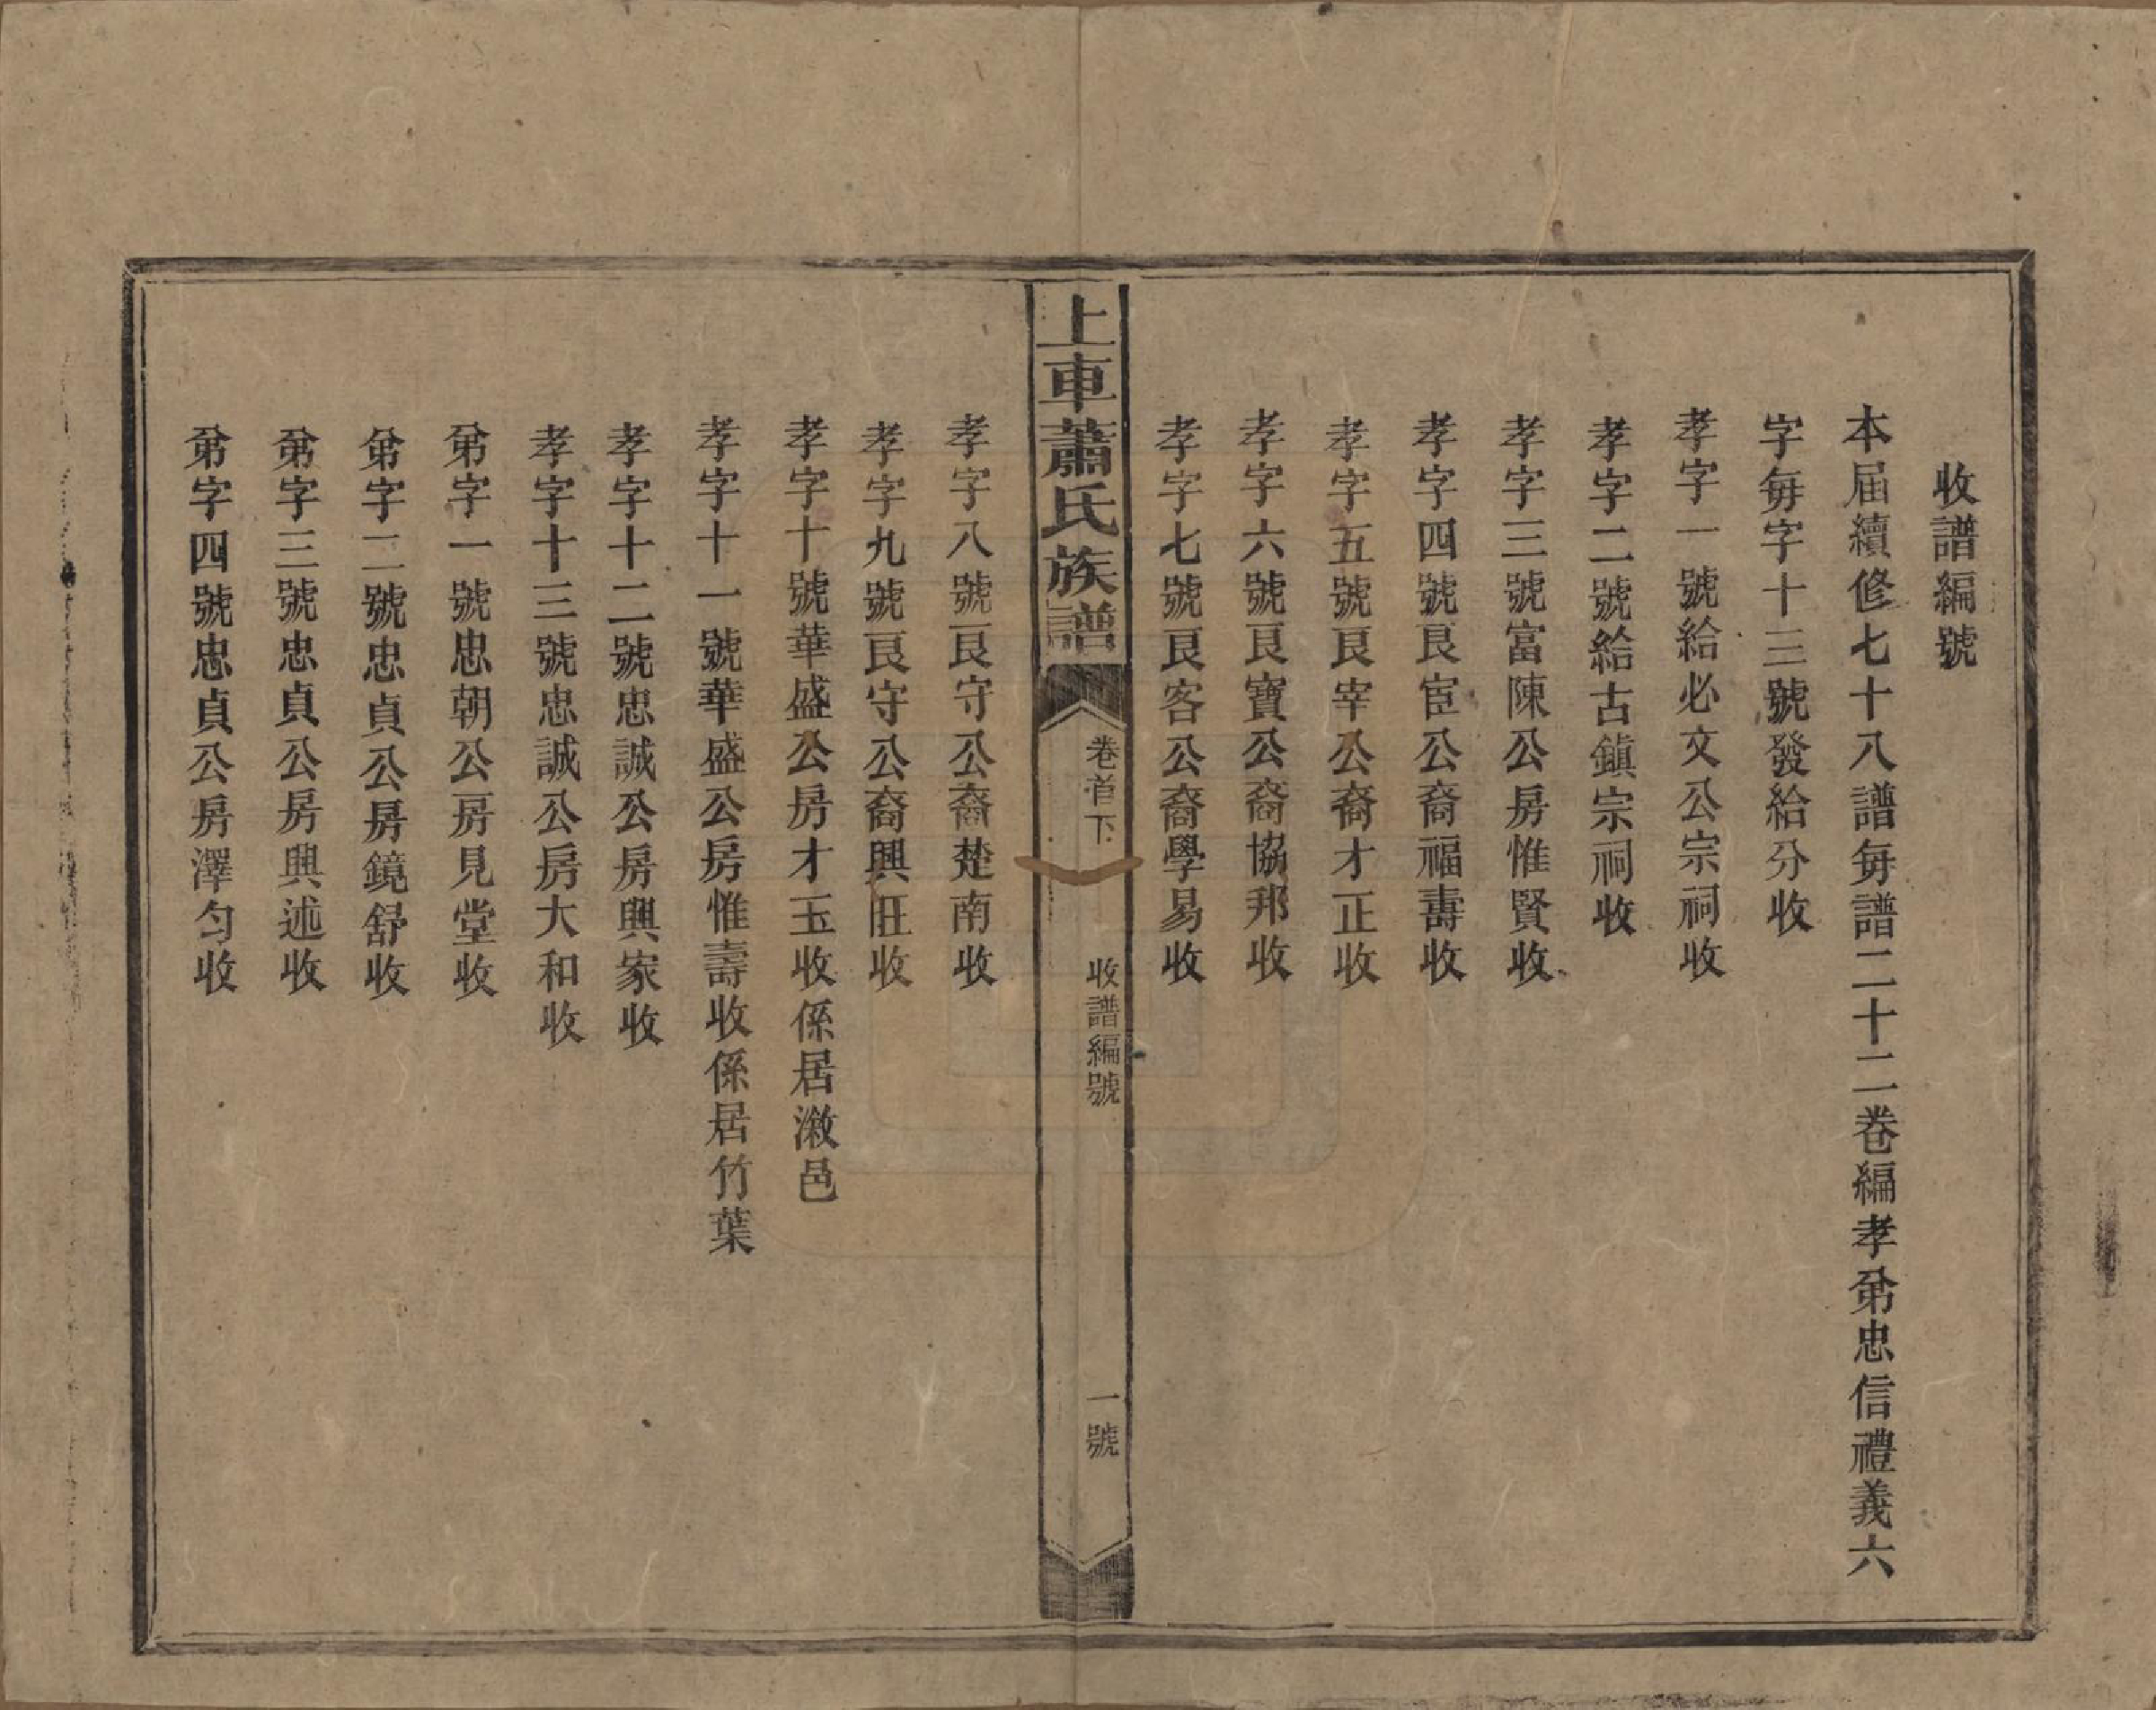 收譜編號
本届續修七十八譜每譜二十二卷編孝弟忠信禮義六
字每字十三號發給分收
孝字一號給必文公宗祠收
孝字二號給古鎮宗祠收
孝字三號富陳公房惟賢收
孝字四號良宦公裔福壽收
孝字五號良宰公裔才正收
孝字六號良寶公裔協邦收
孝字七號良客公裔學易收
上車蕭氏族譜
卷首下
收譜編號
一號
孝字八號良守公裔楚南收
孝字九號良守公裔興旺收
孝字十號華盛公房才玉收係居漵邑
孝字十一號華盛公房惟壽收係居竹葉
孝字十二號忠誠公房興家收
孝字十三號忠誠公房大和收
弟字一號忠朝公房見堂收
弟字二號忠貞公房鏡舒收
弟字三號忠貞公房興述收
弟字四號忠貞公房澤勻收